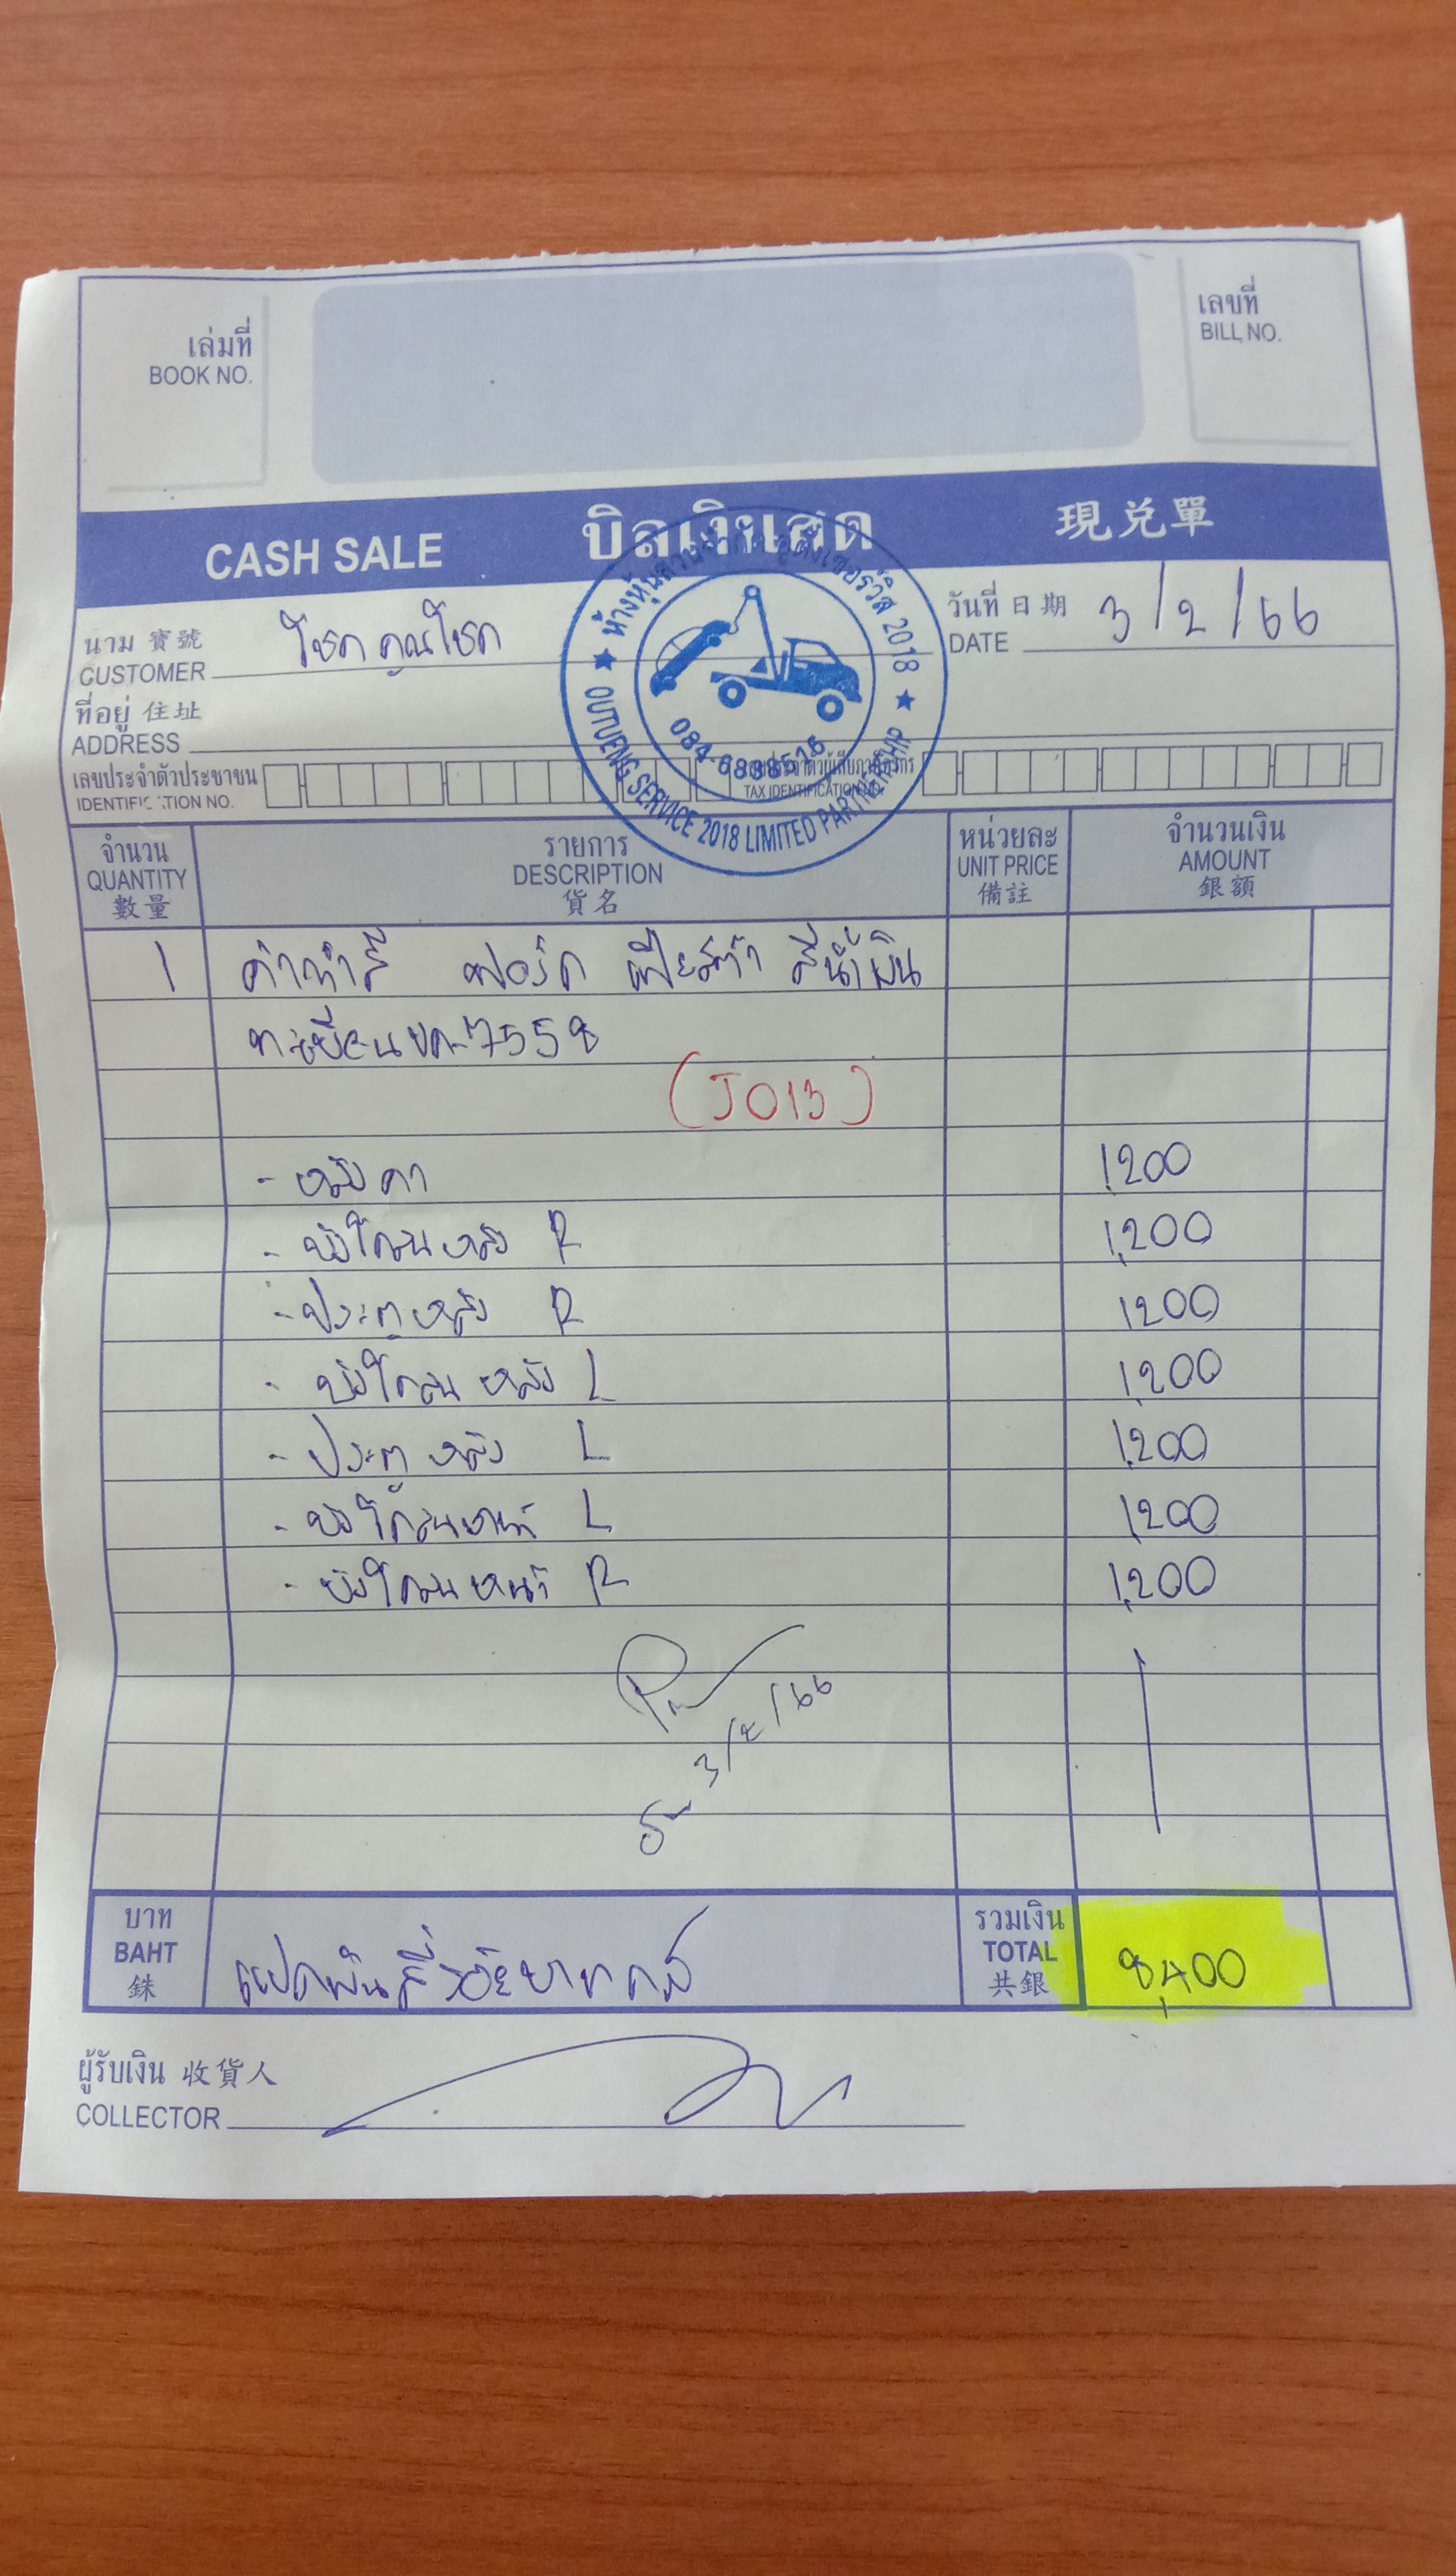 เล่มที่
BOOK NO.
เลขที่
BILL NO.
CASH SALE บิลเงินสด 現兑單
ห้างหุ้นส่วนจำกัด อู่ตึ๋งเซอร์วิส 2018
OUTUENG SERVICE 2018 LIMITED PARTNERSHIP
นาม 寶號
CUSTOMER โชคคูณโชค
วันที่ 日期
DATE 3/2/66
ที่อยู่ 住址
ADDRESS
เลขประจำตัวประชาชน
IDENTIFICATION NO.
TAX IDENTIFICATION NO.
จำนวน
QUANTITY
數量
รายการ
DESCRIPTION
貨名
หน่วยละ
UNIT PRICE
備註
จำนวนเงิน
AMOUNT
銀額
1 ค่าทำสี ฟอร์ด เฟียสต้า สีน้ำเงิน
ทะเบียน 7558
(J013)
- หลังคา 1,200
- บังโคลนหลัง R 1,200
- ประตูหลัง R 1,200
- บังโคลนหลัง L 1,200
- ประตูหลัง L 1,200
- บังโคลนหน้า L 1,200
- บังโคลนหน้า R 1,200
3/2/66
บาท
BAHT
銖
แปดพันสี่ร้อยบาท
รวมเงิน
TOTAL
共銀
8,400
ผู้รับเงิน 收貨人
COLLECTOR